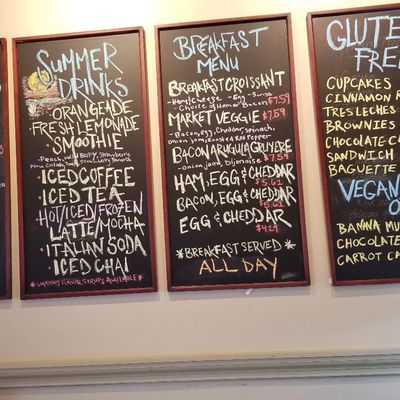 Summer
Drinks
ORANGEADE
FRESH LEMONADE
SMOOTHIE
ICED COFFEE
ICED TEA
HOT/ICED/FROZEN
LATTE/MOCHA
ITALIAN SODA
ICED CHAI
*VARIOUS FLAVOR SYRUPS AVAILABLE*
BREAKFAST
MENU
BREAKFAST CROISSANT
$7.59
MARKET VEGGIE $7.59
- Bacon, egg, cheddar, spinach,
BACON ARUGULA GRUYERE
$7.59
- Onion jam, Dijonaise
HAM, EGG & CHEDDAR
$5.62
BACON, EGG & CHEDDAR
$5.62
EGG & CHEDDAR
$4.29
*BREAKFAST SERVED*
ALL DAY
GLUTE
FRE
CUPCAKES
CINNAMON R
TRES LECHES
BROWNIES
CHOCOLATE C
SANDWICH
BAGUETTE
VEGAN
O
BANANA MU
CHOCOLATE
CARROT CA